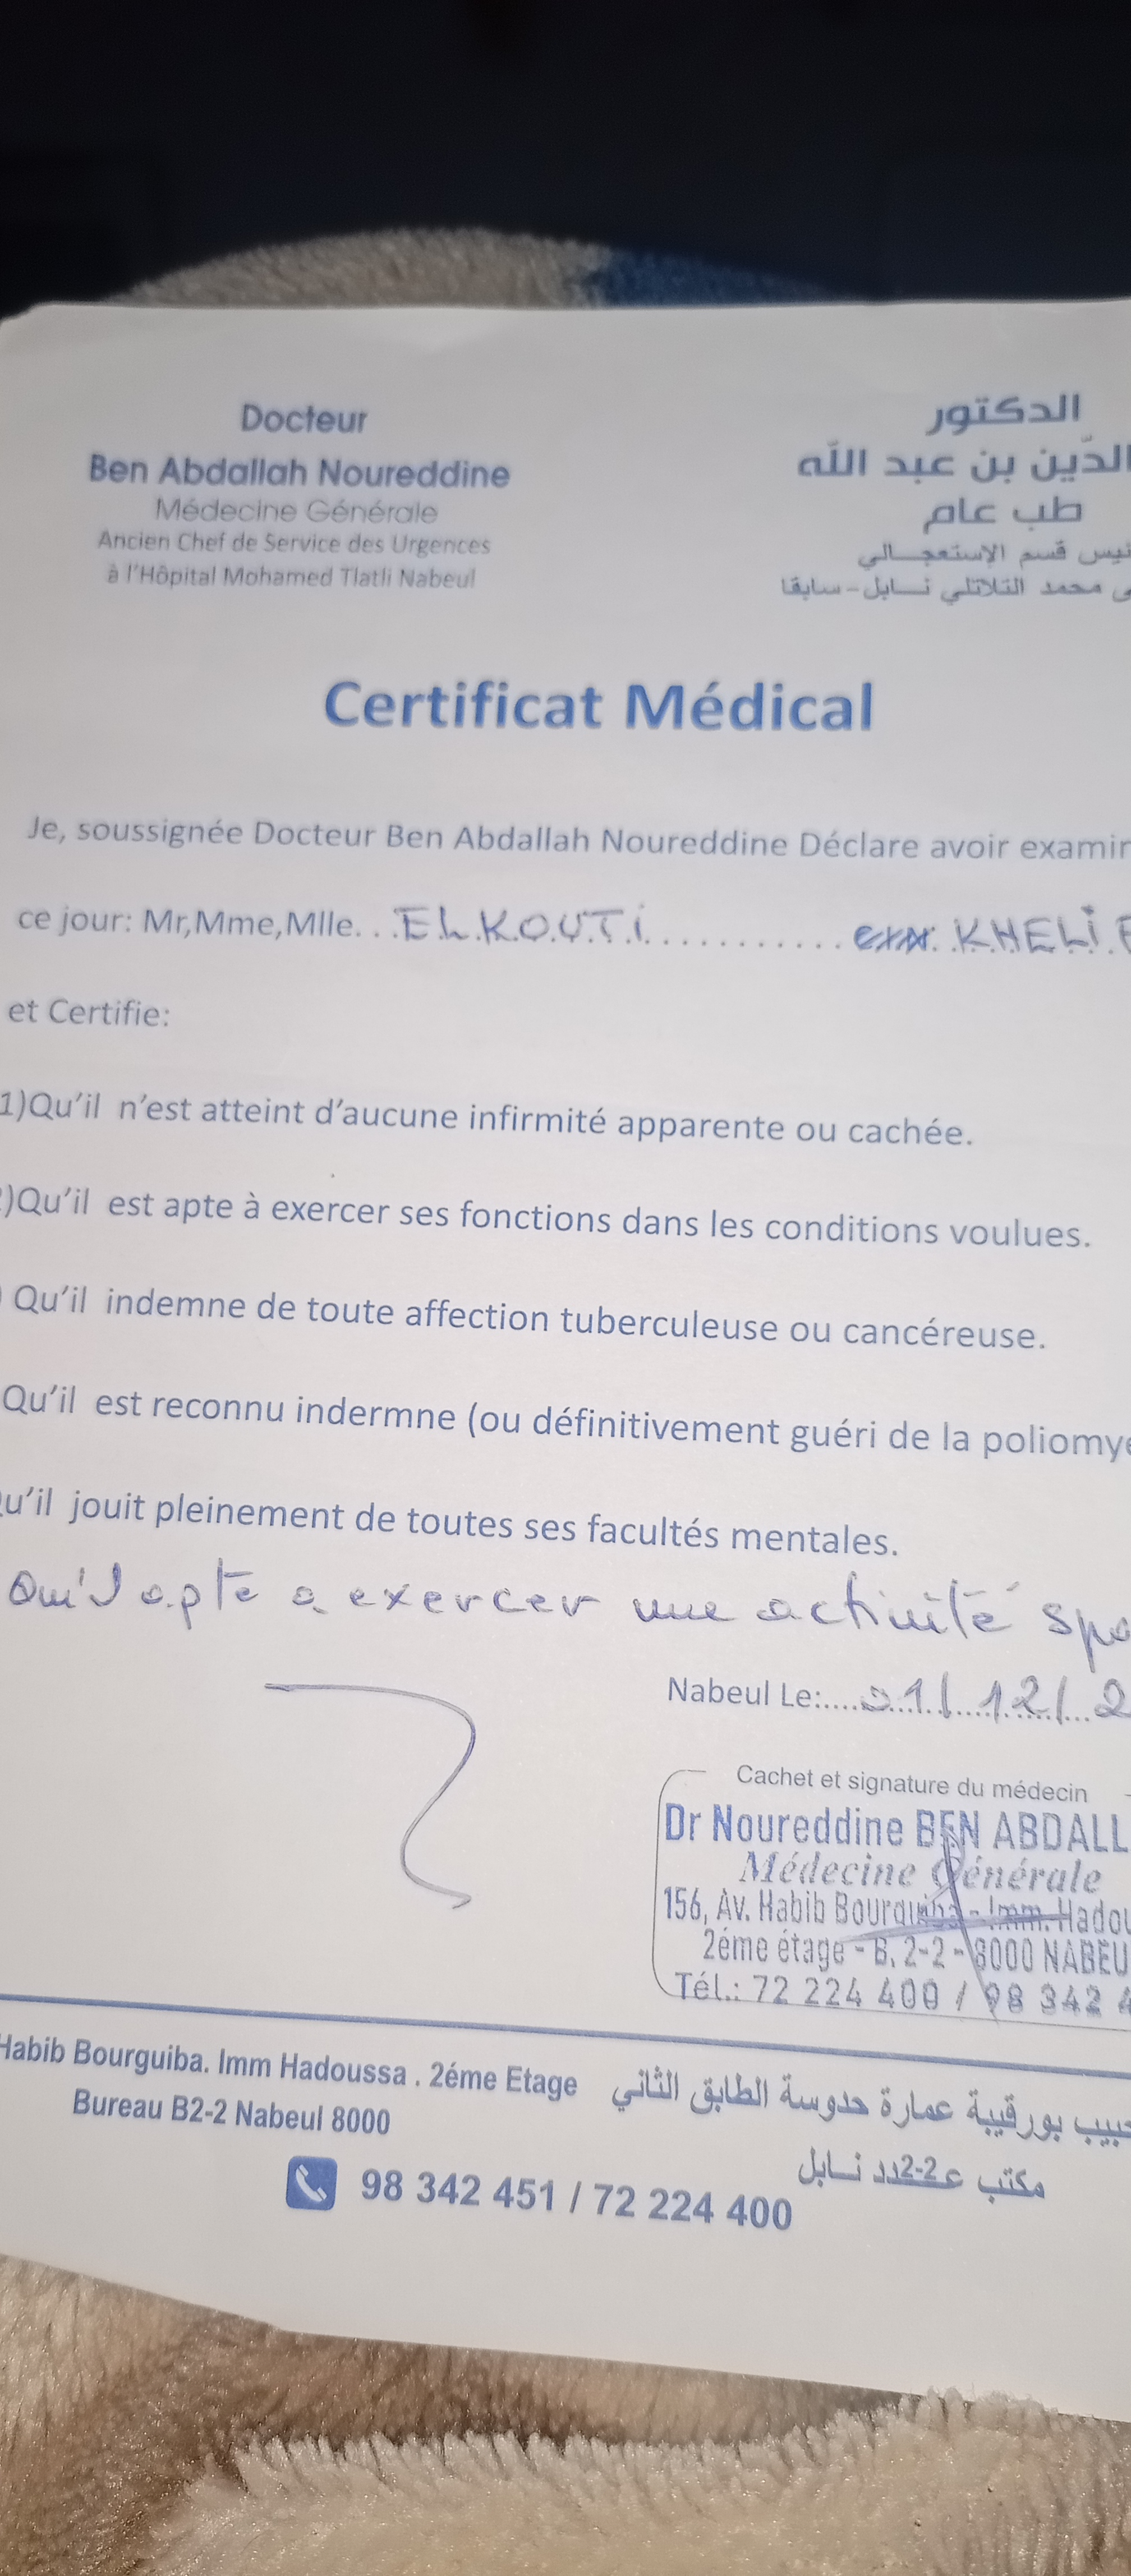 Docteur
Ben Abdallah Noureddine
Médecine Générale
Ancien Chef de Service des Urgences
à l'Hôpital Mohamed Tlatli Nabeul
الدكتور
الدّين بن عبد الله
طب عام
قسم الإستعجالي
محمد التلاتلي نابل - سابقا
Certificat Médical
Je, soussignée Docteur Ben Abdallah Noureddine Déclare avoir examin
ce jour: Mr,Mme,Mlle. . .ELKOUTI............ KHELI
et Certifie:
1)Qu'il n'est atteint d'aucune infirmité apparente ou cachée.
)Qu'il est apte à exercer ses fonctions dans les conditions voulues.
Qu'il indemne de toute affection tuberculeuse ou cancéreuse.
Qu'il est reconnu indermne (ou définitivement guéri de la poliomye
u'il jouit pleinement de toutes ses facultés mentales.
Qu'il apte a exercer une activité spo
Nabeul Le:....01/12/2
Cachet et signature du médecin
Dr Noureddine BEN ABDALL
Médecine Générale
156, Av. Habib Bourguiba - Imm. Hadou
2éme étage - B. 2-2 - 8000 NABEU
Tél.: 72 224 400 / 98 342 4
Habib Bourguiba. Imm Hadoussa . 2éme Etage
Bureau B2-2 Nabeul 8000
حبيب بورقيبة عمارة حدوسة الطابق الثاني
مكتب عـ2-2ـدد نابل
98 342 451 / 72 224 400